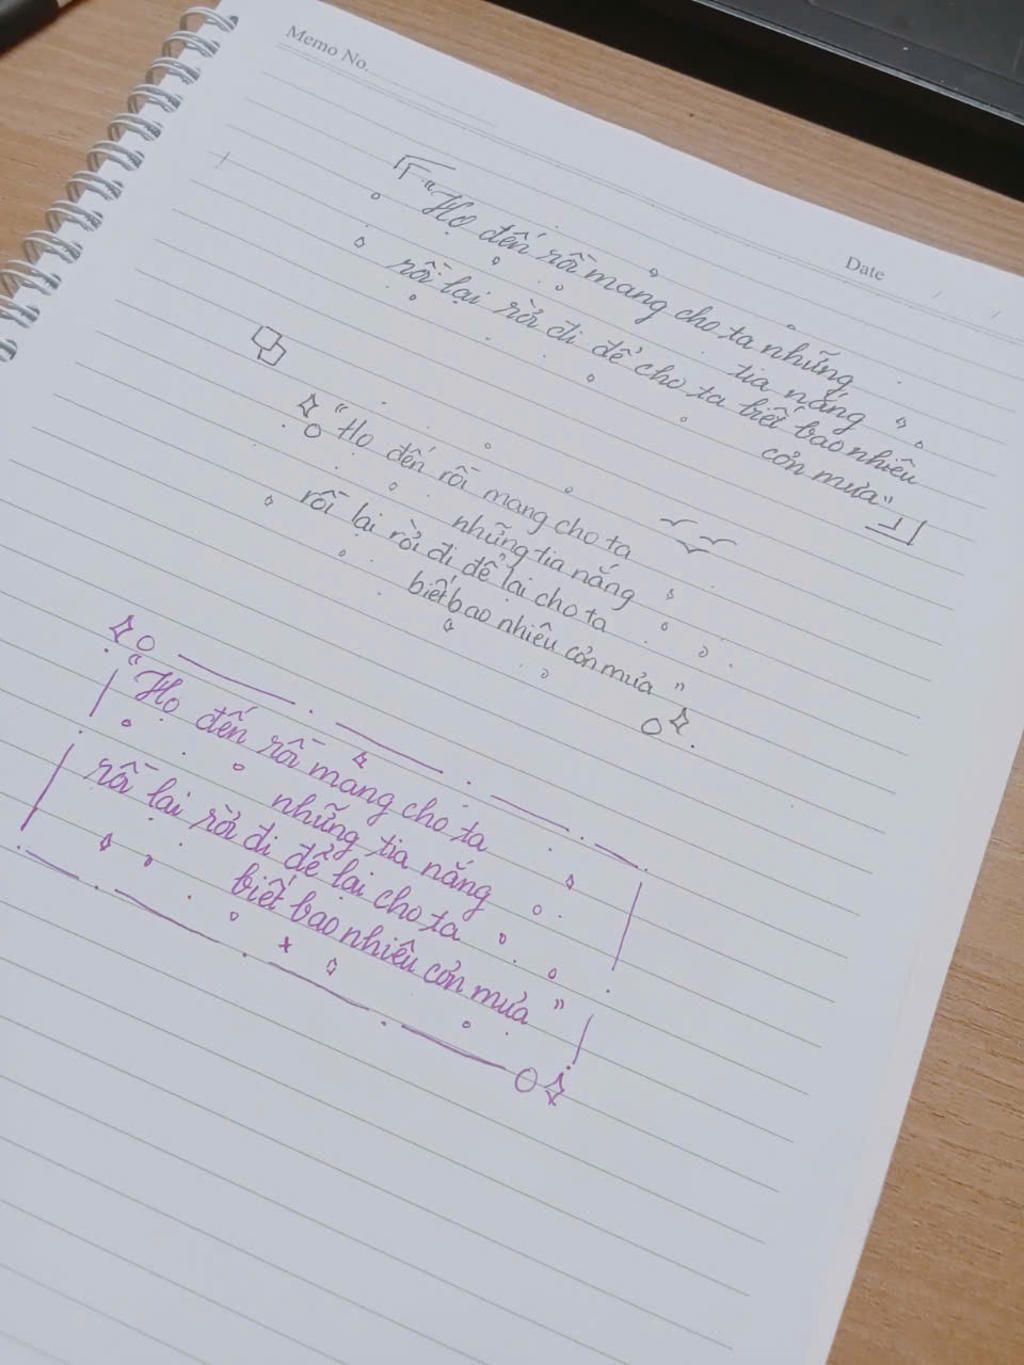 Memo No.
Date
"Họ đến rồi mang cho ta những
tia nắng
rồi lại rời đi để cho ta biết bao nhiêu
cơn mưa"
"Họ đến rồi mang cho ta
những tia nắng
rồi lại rời đi để lại cho ta
biết bao nhiêu cơn mưa"
"Họ đến rồi mang cho ta
những tia nắng
rồi lại rời đi để lại cho ta
biết bao nhiêu cơn mưa"